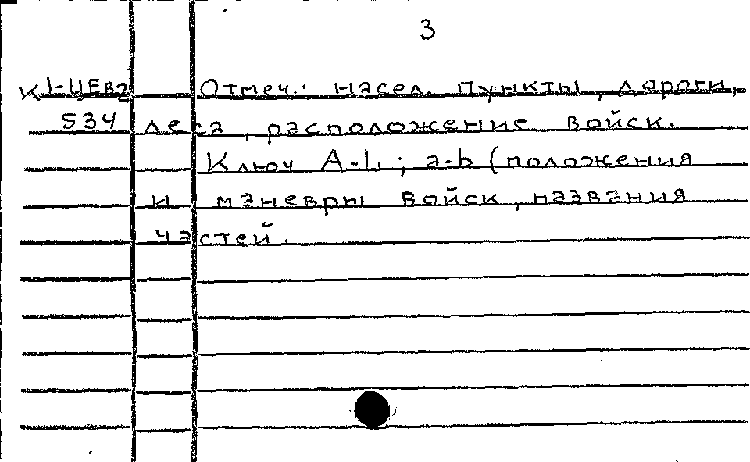 3
Отмеч.: насел. пункты, дороги,
534 леса, расположение войск.
Ключ A-L; a-b (положения
и маневры войск, названия
частей.